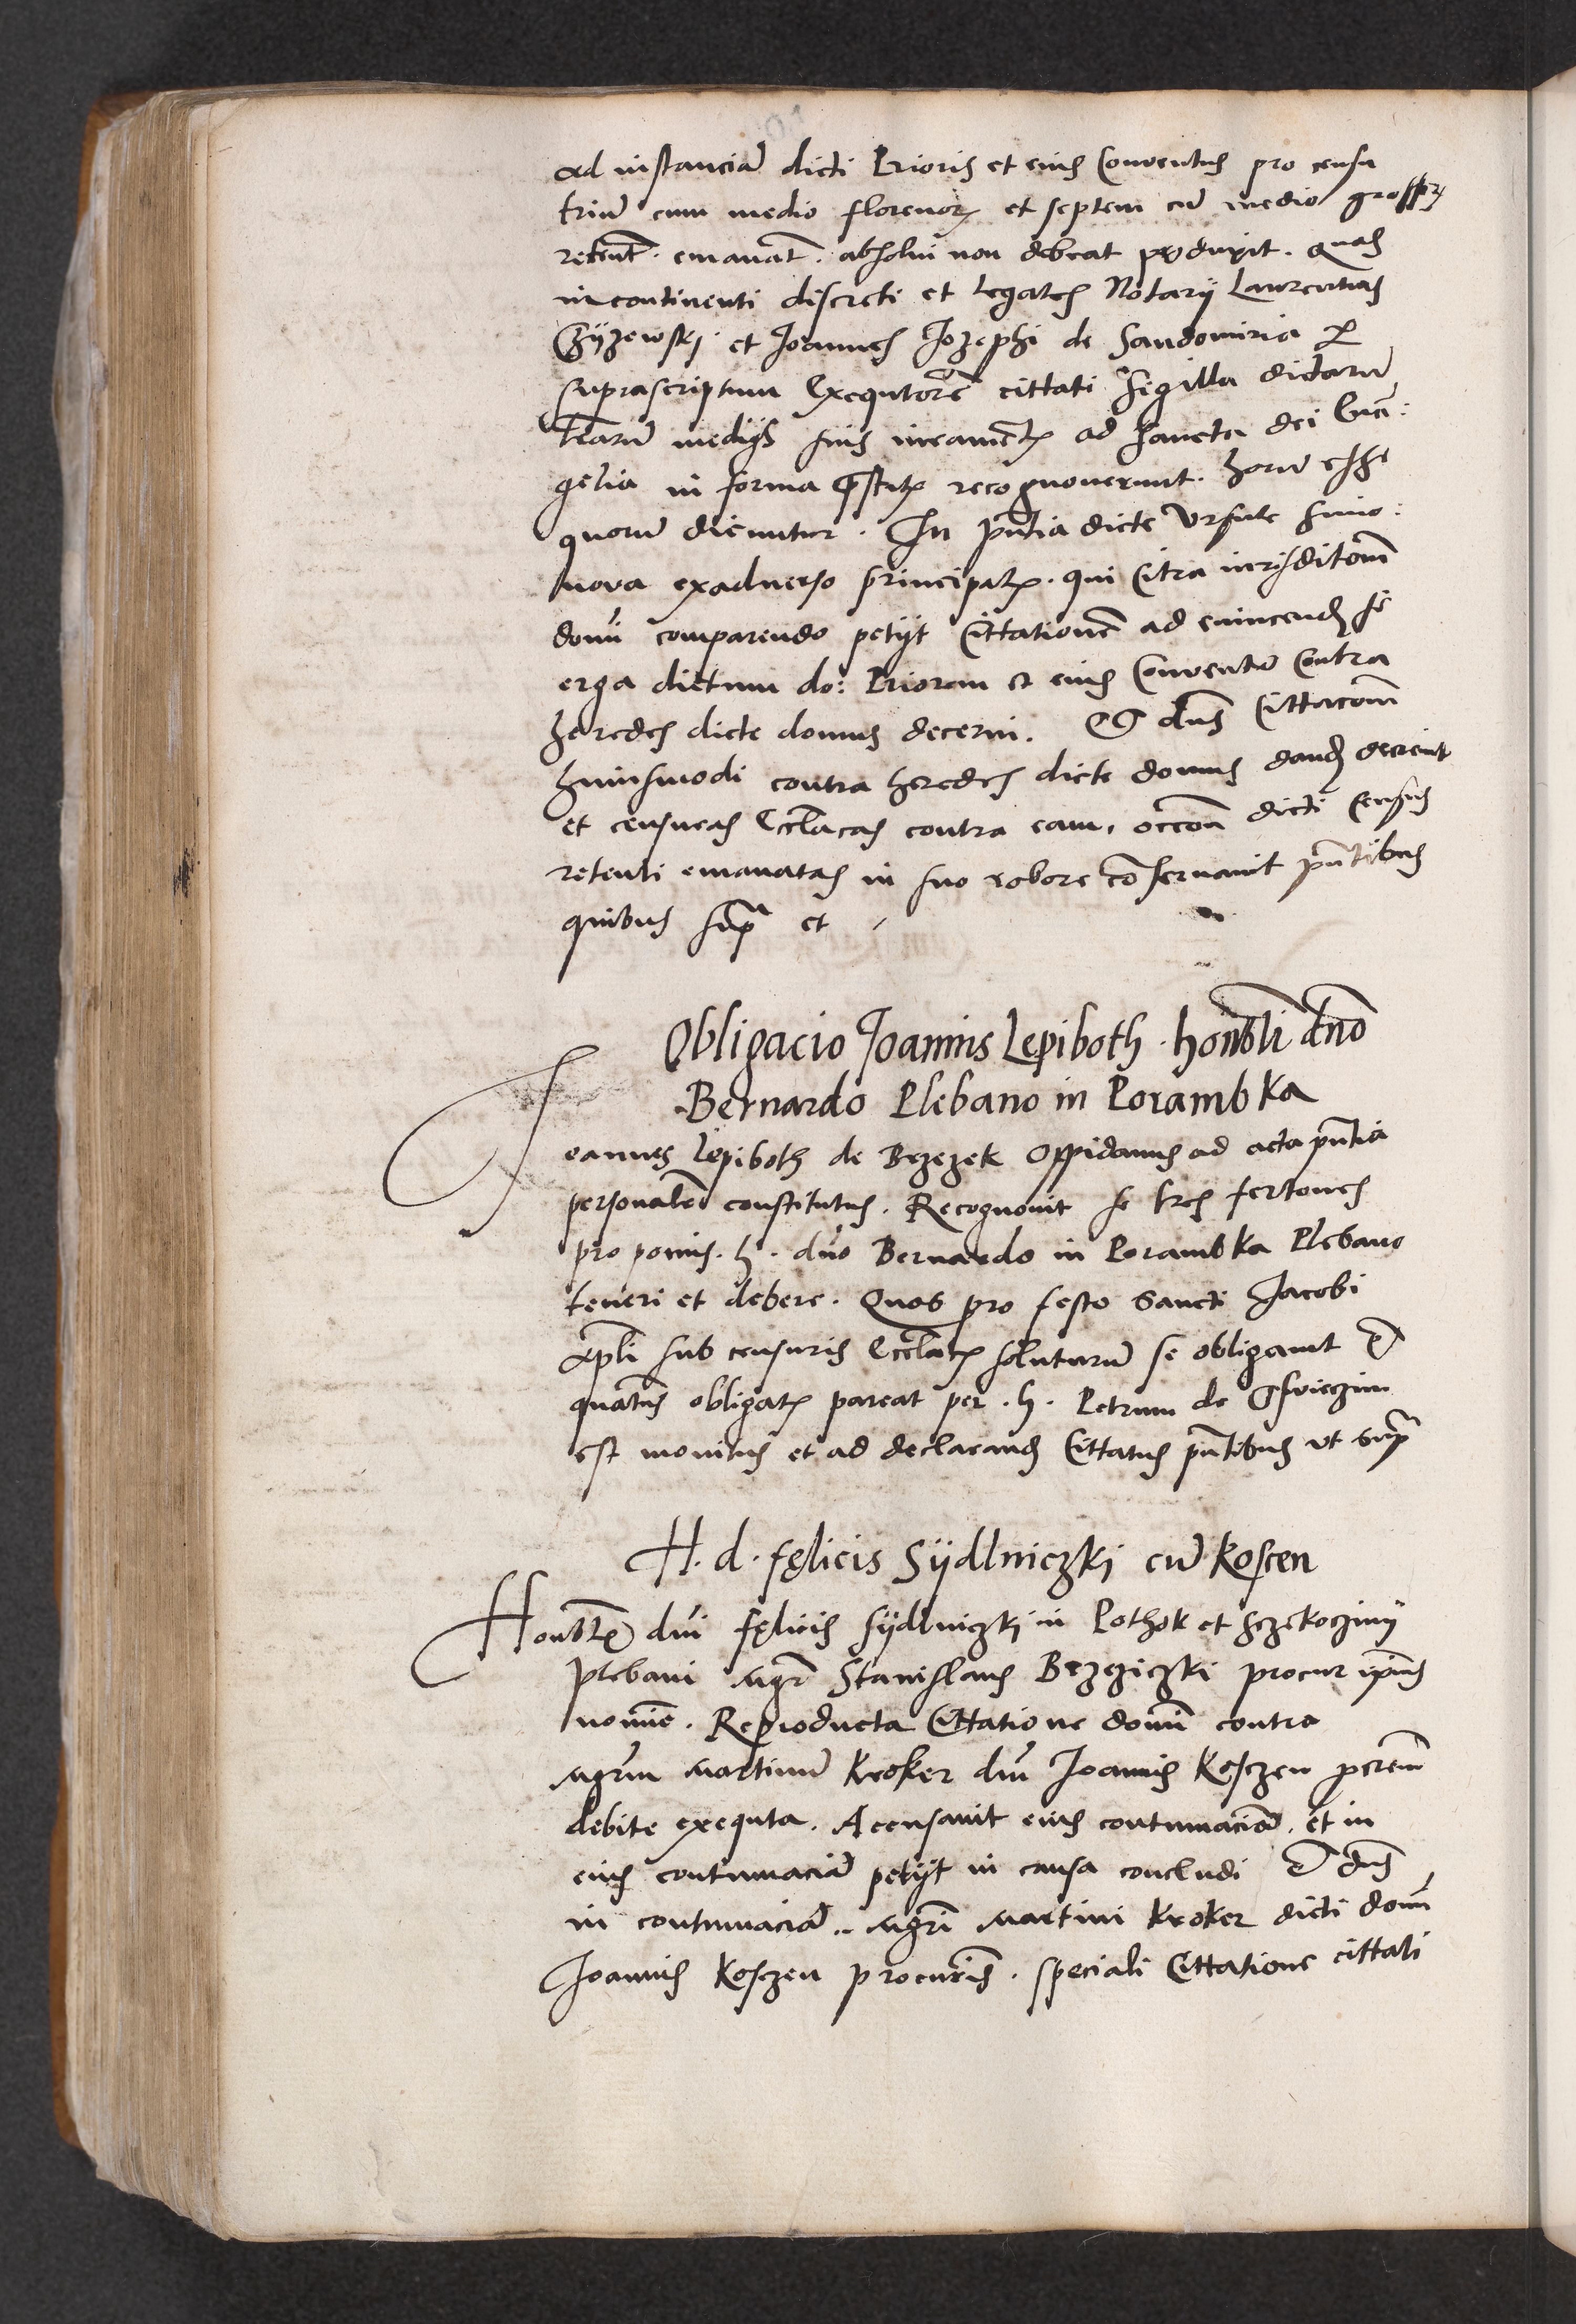 ad instanciā dicti Prioris et eius Conventus pro censu
triū cum medio florenorꝫ et septem cū medio grossorꝫ
retent. emanat. absolvi non debeat produxit. quas
incontinenti discreti et legales Notarij Laurentius
Czijzewskj et Joannes Jozephi de Sandomiria per
suprascriptum Exequtorē cittati Sigilla dictarū
lrārū medijs suis iuramentꝭ ad Sancta dei Evā:
gelia in forma prestitꝭ recognoverunt. horū esse
quorū dicuntur. In pn̄tia dicte Ursule Simo:
nova exadverso principalꝭ. qui Citra iurisditōem
donū comparendo petijt Cittationē ad evincendū se
erga dictum do: Priorem et eius Conventū Contra
heredes dicte domus decerni. Et dn̄s Cittacōem
huiusmodi contra heredes dicte domus dandā decrevit
et censuras Eccl̄acas contra eam, occōe dicti Census
retenti emanatas in suo robore cōservavit pn̄tibus
quibus supra et
Obligacio Joannis Lepiboth. honorabli dn̄o
Bernardo Plebano in Porambka
Joannes Lepiboth de Bezezek Oppidanus ad acta pn̄tia
personalē constitutus. Recognovit se tres fertones
pro pomis. h. dn̄o Bernardo in Porambka Plebano
teneri et debere. Quos pro festo Sancti Jacobi
Apl̄i sub censuris Eccl̄atꝭ soluturū se obligavit Et
quatēs obligatꝭ pareat per. h. Petrum de Osvieczim
est monitus et ad declarandū Cittatus pn̄tibus ut supra
H. d. felicis Sijdlniczkj cū Koscen
Honorablꝭ dn̄i felicis sijdlniczkj in Pothok et sczekoczinij
plebani Mgr̄ Stanislaus Bezeziczkj procur ipius
nomine. Reproducta Cittatione donī contra
Mgrūm Martinū Kroker dn̄i Joannis Kosczen pcrem̄
debite exequta. Accusavit eius contumaciā. et in
eius contumaciā petijt in causa concludi Et dn̄s
in contumaciā.. Mgrī Martini Kroker dicti donī
Joannis Kosczen procurīs. speciali Cittatione cittati